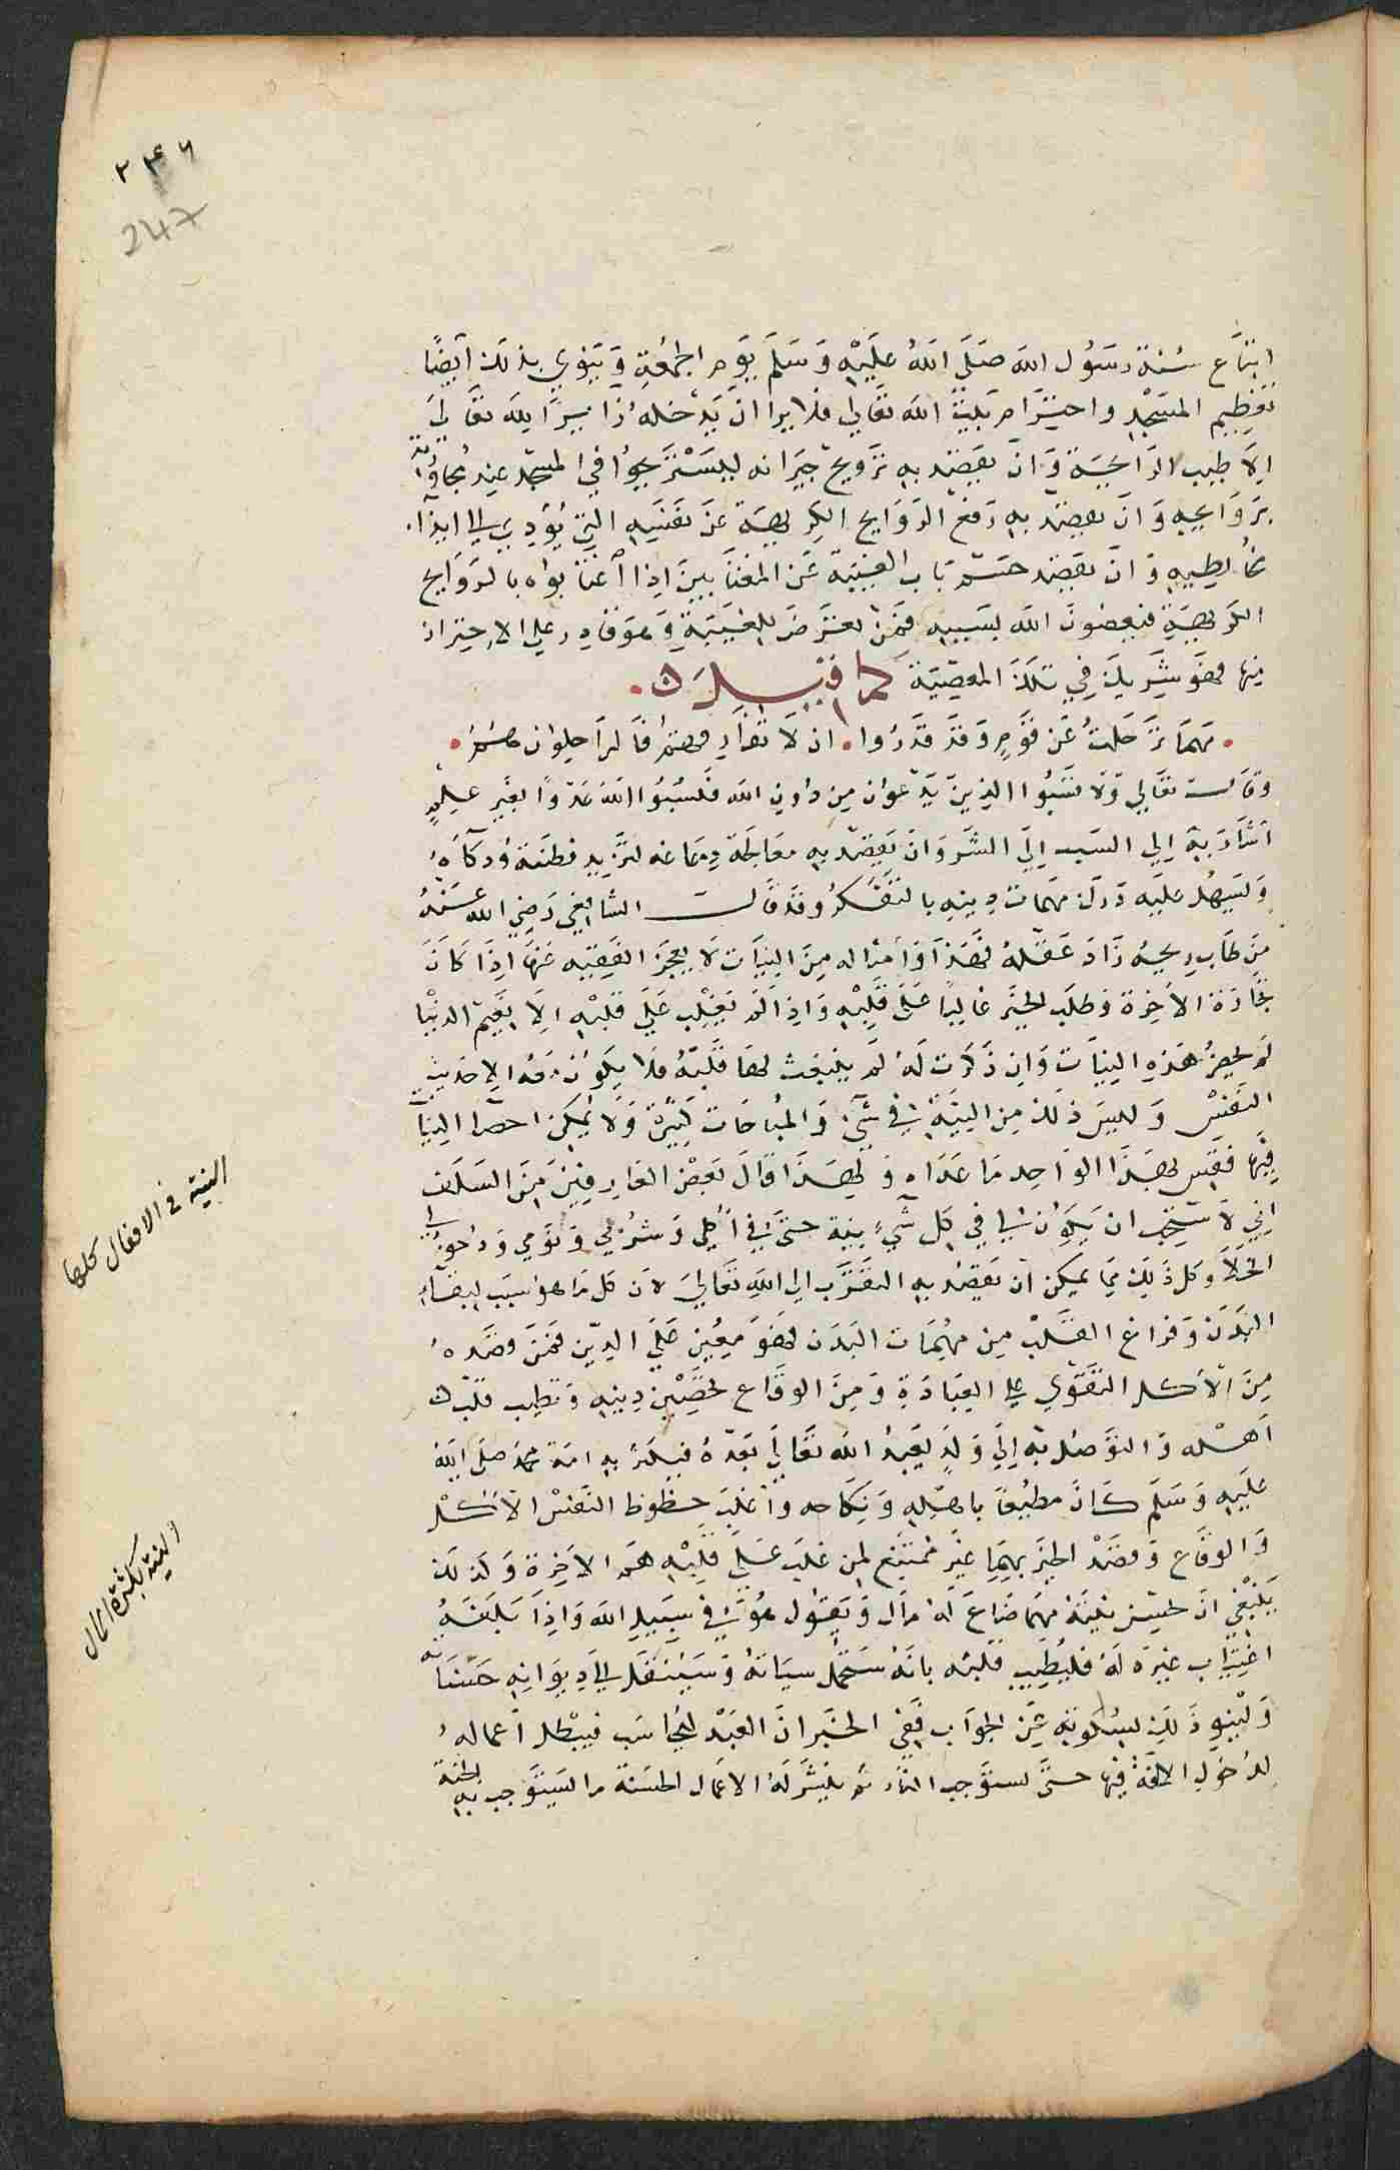 ٢٤٦
247
اتباع سنة رسول الله صلى الله عليه وسلم يوم الجمعة وينوي بذلك ايضا
تعظيم المسجد واحترام بيت الله تعالى فلا يرا ان يدخله زايرا لله تعالى
الا طيب الرايحة وان يقصد به ترويح جيرانه ليستريحوا في المسجد عند مجاورته
بروايحه وان يقصد به دفع الروايح الكريهة عن نفسه التي يؤدي الى ايذاء
مخالطيه وان يقصد حسم باب الغيبة عن المغتابين اذا اغتابواه بالروايح
الكريهة فيعصون الله بسببه فمن تعرض للغيبة وهو قادر على الاحتراز
منها فهو شريك في تلك المعصية كما قيل
مهما ترحلت عن قوم وقد قدروا ان لا تفارقهم فالراحلون هم
وقال تعالى ولا تسبوا الذين يدعون من دون الله فيسبوا الله عدوا بغير علم
اشار به الى السب الى الشر وان يقصد به معالجة دماغه لتزيد فطنته وذكاؤه
ويسهل عليه درك مهمات دينه بالتفكر وقد قال الشافعي رضي الله عنه
من طاب ريحه زاد عقله فهذا وامثاله من النيات لا يعجز الفقيه عنها اذا كان
تجارة الاخرة وطلب الخير غالبا على قلبه واذا لم يغلب على قلبه الا نعيم الدنيا
لم يحضره هذه النيات وان ذكرت له لم ينبعث لها قلبه فلا يكون معه الا حديث
النفس وليس ذلك من النية في شي والمباحات كثيرة ولا يمكن احصا النيات
فيها فقس بهذا الواحد ما عداه ولهذا قال بعض العارفين من السلف
اني لا ستحب ان يكون لي في كل شيء نية حتى في اكلي وشربي ونومي ودخولي الى
الخلا وكل ذلك مما يمكن ان يقصد به التقرب الى الله تعالى لان كل ما هو سبب لبقاء
البدن وفراغ القلب من مهمات البدن فهو معين على الدين فمن قصده
من الاكل التقوي على العبادة ومن الوقاع تحصين دينه وتطيب قلب
اهله والتوصل به الى ولد يعبد الله تعالى بعده فيكثر به امة محمد صلى الله
عليه وسلم كان مطيعا باهله ونكاحه واغلب حظوظ النفس الاكل
والوقاع وقصد الخير بهما غير ممتنع لمن غلب على قلبه هم الاخرة ولذلك
ينبغي ان تحسن نيته مهما ضاع له مال ويقول هو في سبيل الله واذا بلغه
اغتياب غيره له فليطيب قلبه بانه ستحمل سياته وسينقل الى ديوانه حسناته
ولينو ذلك بسكوته عن الجواب ففي الخبر ان العبد ليحاسب فيبطل اعماله
لدخول الافة فيها حتى يستوجب النار ثم ينشر له الاعمال الحسنة ما يستوجب به الجنة
النية في الافعال كلها
النية بكثرة المال